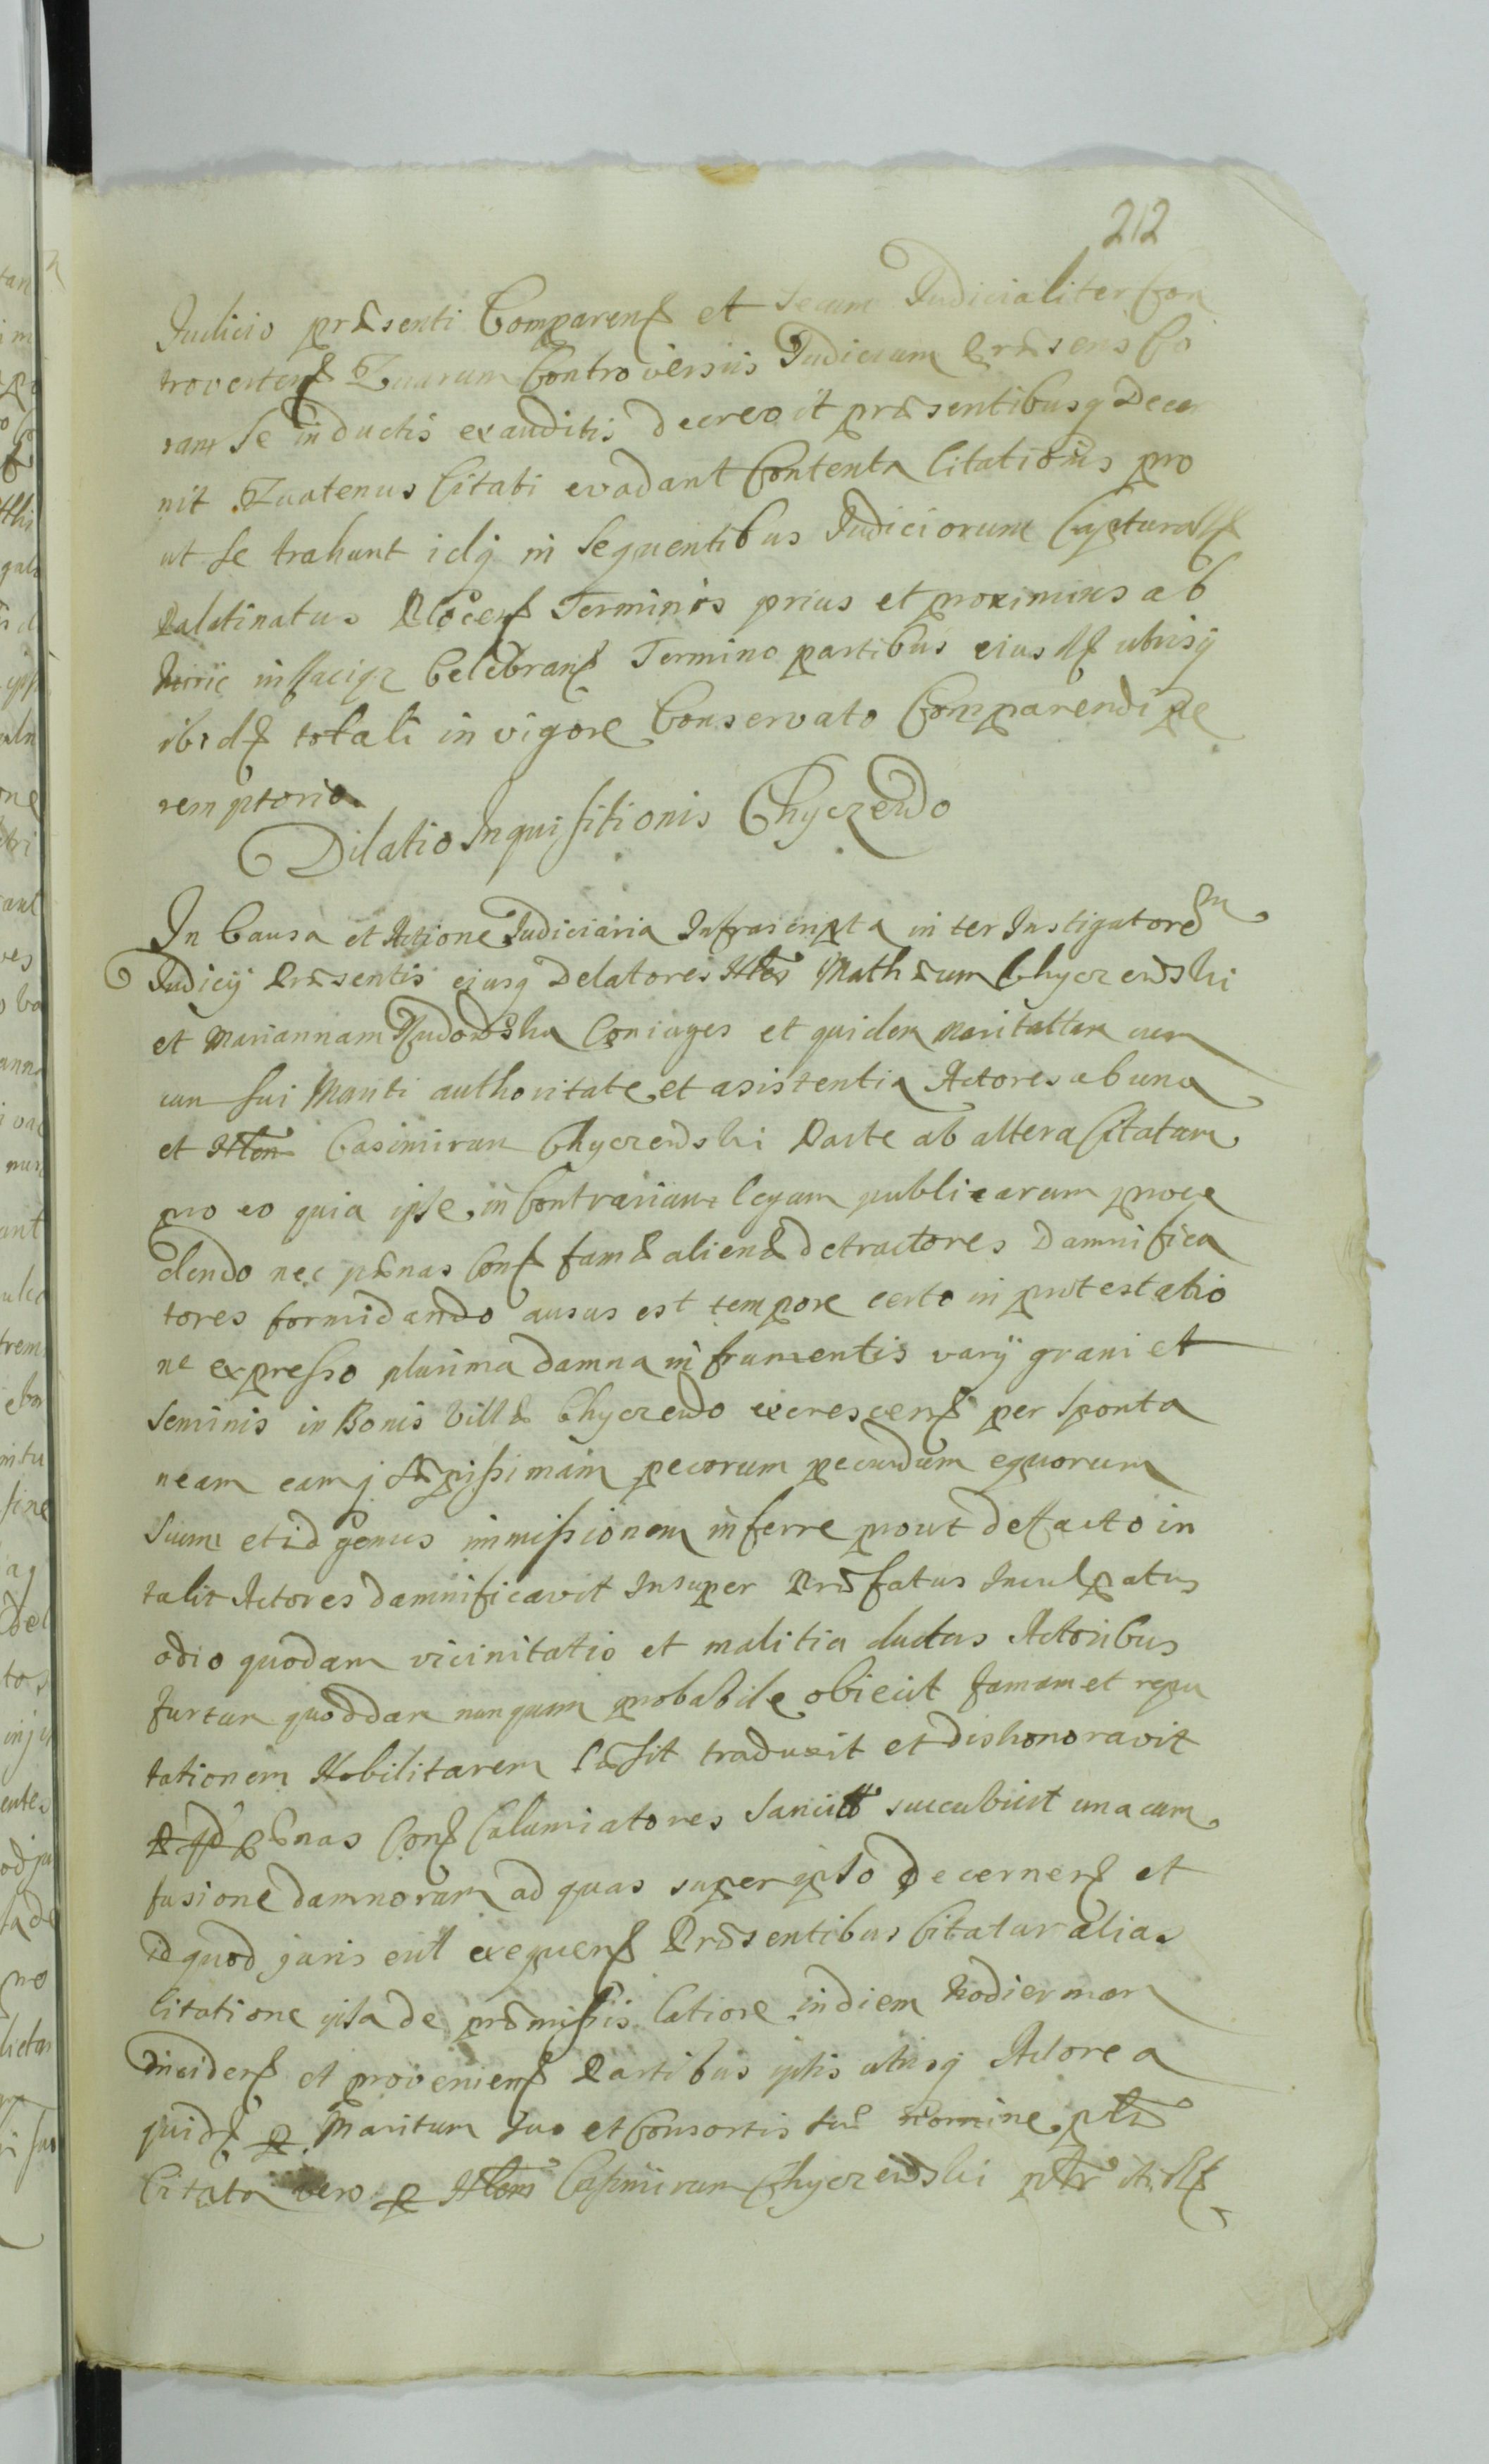 212
Judicio præsenti Comparens et secum Judicialiter Con
trovertens Quarum Controversiis Judicium Præsens Co
ram se inductis exauditis decrevit præsentibusq Decer
nit Quatenus Citati evadant Contenta Citationis pro
ut se trahunt idq in sequentibus Judiciorum Capturalt
Palatinatus Plocens Terminis prius et proximius ab
hinc in facie Celebrans Termino partibus eiusd utrisq
ibid totali in vigore Conservato Comparendi pe
remptorio
Dilatio Inquisitionis Chyczewo
In Causa et Actione Judiciaria Infrascripta inter Instigatorem
Judicij Præsentis ejusq Delatores Nles Mathæum Chyczewski
et Mariannam Rudowska Coniuges et quidem maritatam cum
cum sui Mariti authoritate et asistentia Actores ab una
et Nlem Casimirum Chyczewski Parte ab altera Citatum
pro eo quia ipse in Contrarium legum publicarum proce
dendo nec pænas Cons famæ alienæ detractores Damnifica
tores formidando ausus est tempore certo in protestatio
ne expresso plurima damna in frumentis varij grani et
seminis in Bonis Villæ Chyczewo excrescens per sponta
neam eamq sæpissimam pecorum pecudum equorum
suum et id genus immissionem inferre prout de facto in
tulit Actores damnificavit Insuper Præfatus Inculpatus
odio quodam vicinitatis et malitia ductus Actoribus
furtum quoddam nunquam probabile obiecit famam et repu
tationem Nobilitarem læsit traduxit et dishonoravit
pænas Cons Calumiatores sancitt succubuit una cum
fusione damnorum ad quas super ipso decernens et
id quod juris erit exequens Præsentibus Citatur alias
Citatione ipsa de præmissis latiore in diem hodiernam
inciders et proveniens Partibus iptis utrisq Actorea
quid p Maritum suo et Consortis suæ nomine
Citata vero p Nlem Casimirum Chyczewski itid